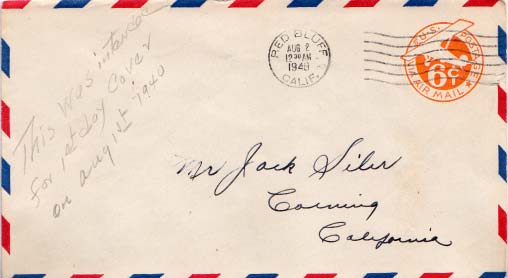 This was intended
for 1st day cover
on aug 1st 1940
RED BLUFF
AUG 2
12 30 AM
1940
CALIF.
U.S. POSTAGE
6¢
VIA AIR MAIL
Mr Jack Siler
Corning
California